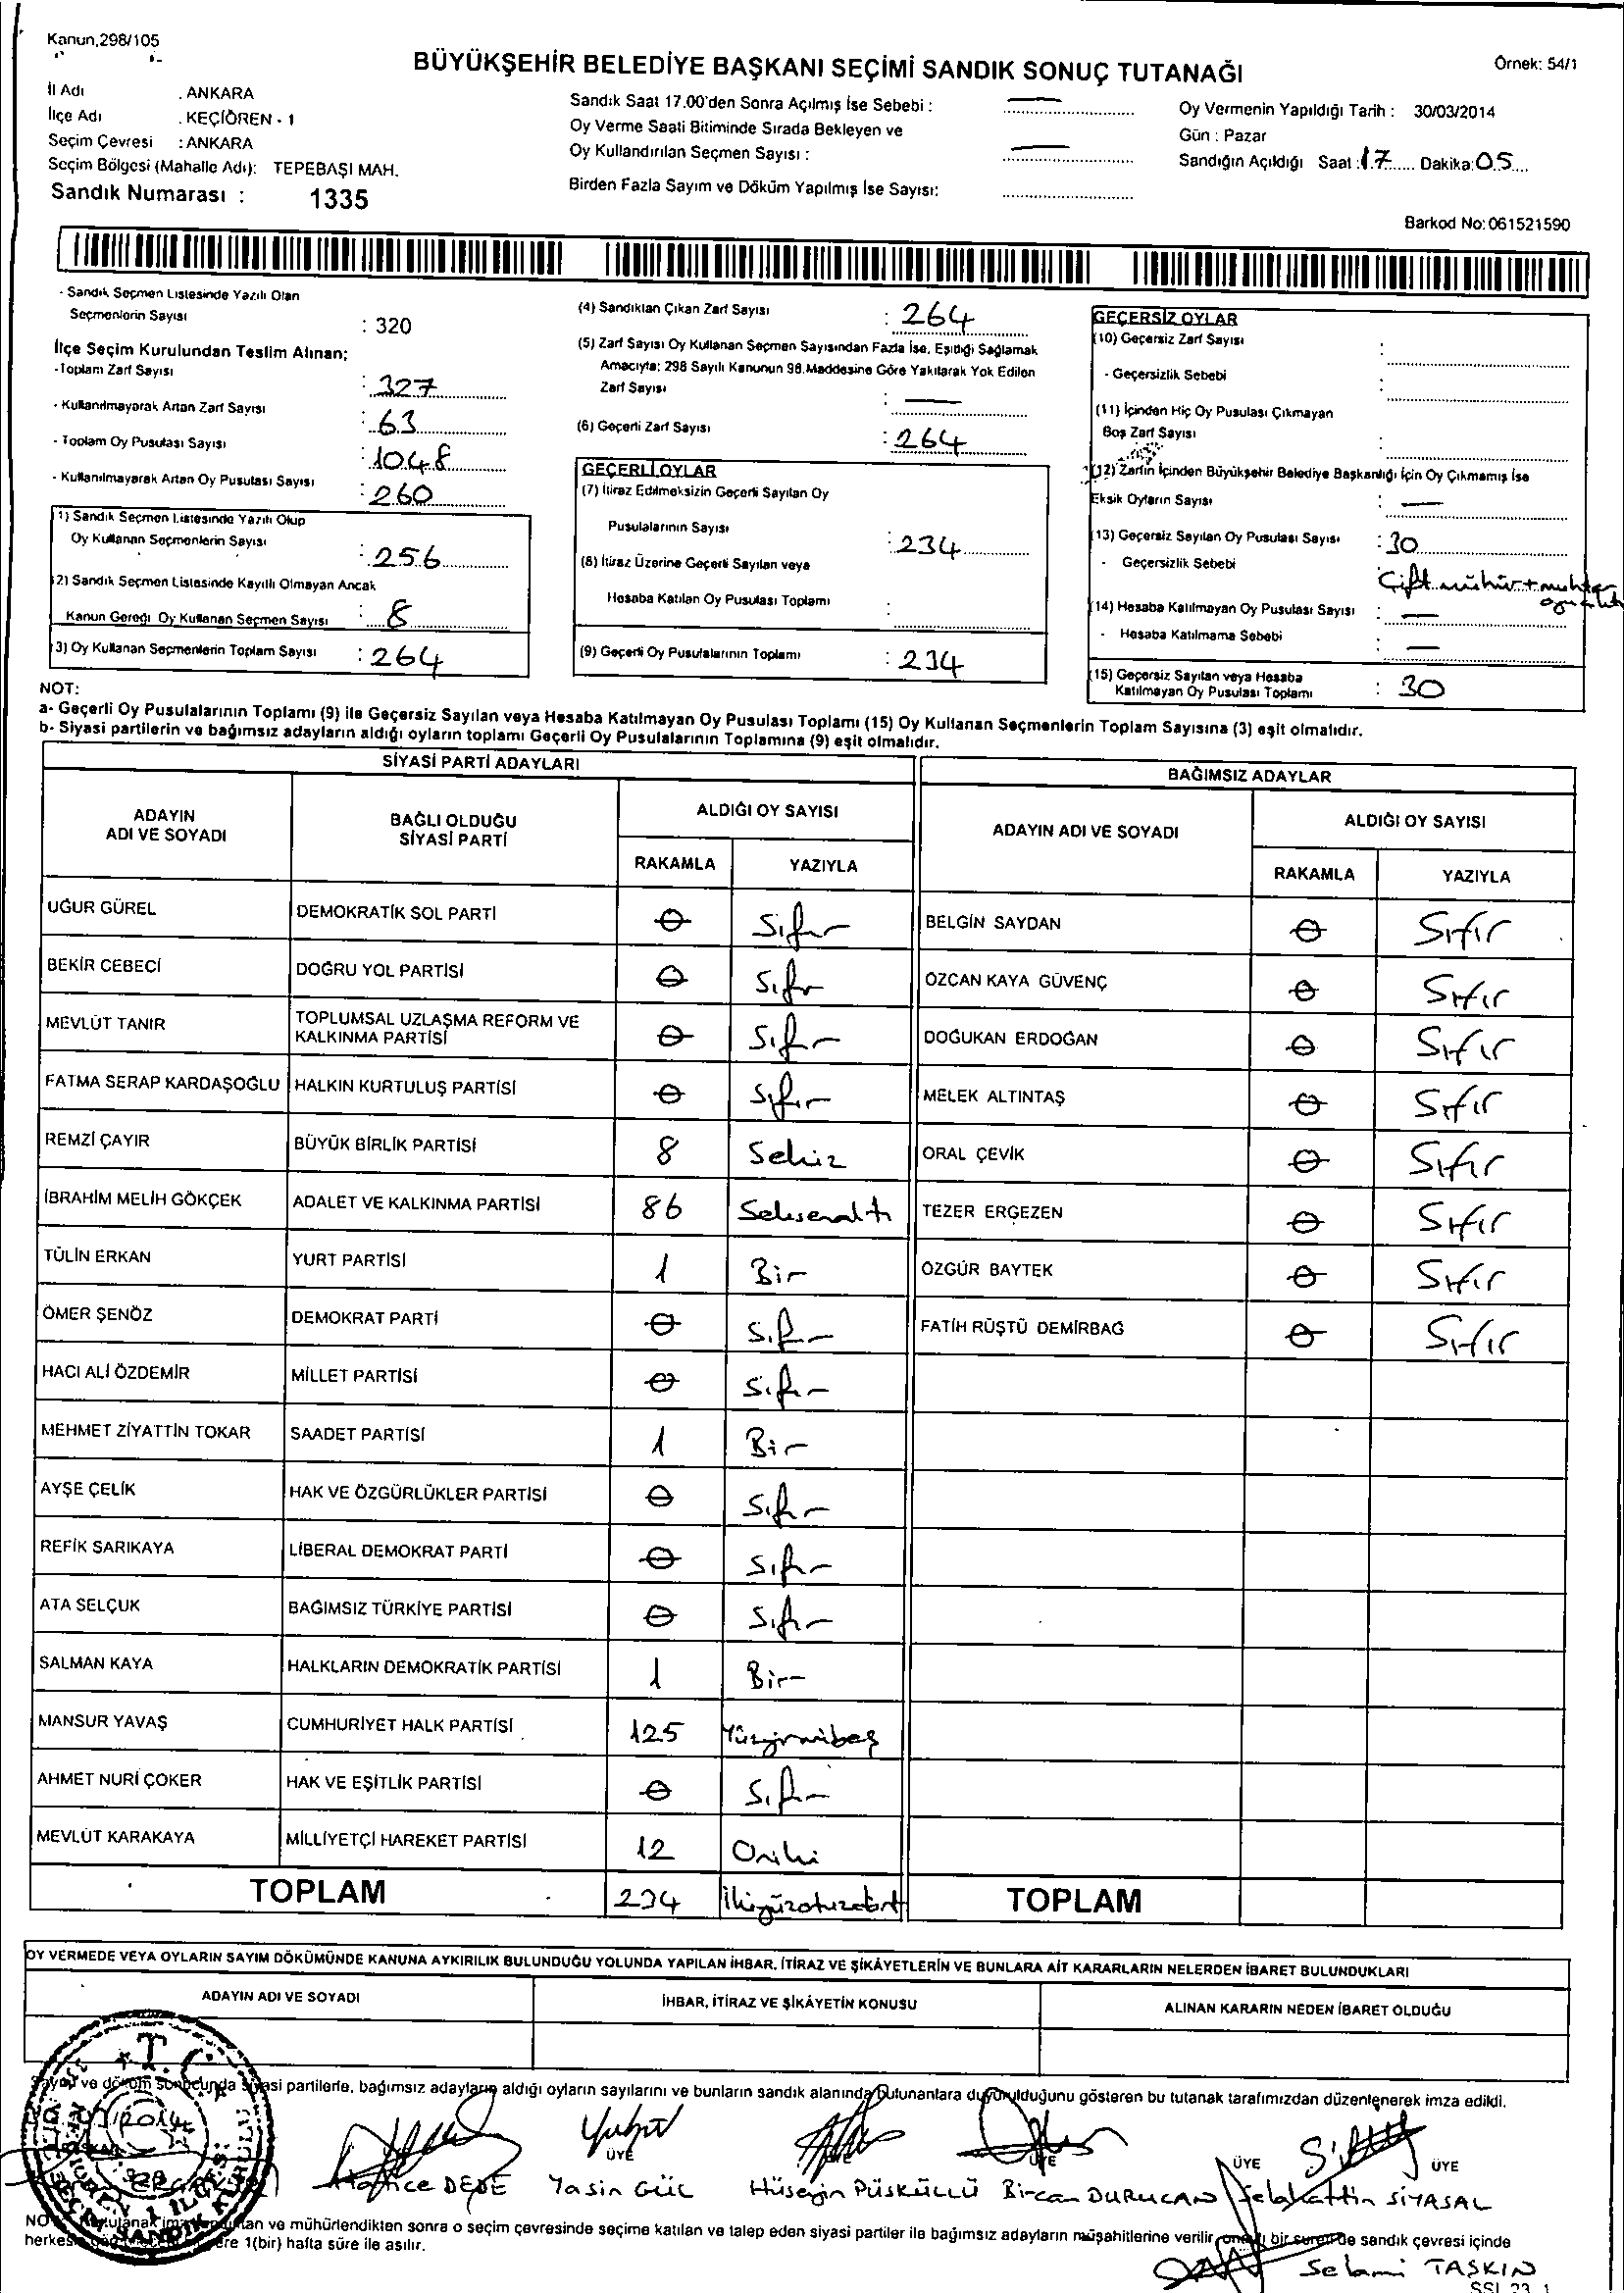 Kanun,298/105
BÜYÜKŞEHİR BELEDİYE BAŞKANI SEÇİMİ SANDIK SONUÇ TUTANAĞI
Örnek: 54/1
İl Adı : ANKARA
İlçe Adı : KEÇİÖREN - 1
Seçim Çevresi : ANKARA
Seçim Bölgesi (Mahalle Adı): TEPEBAŞI MAH.
Sandık Numarası : 1335
Sandık Saat 17.00'den Sonra Açılmış İse Sebebi : —
Oy Verme Saati Bitiminde Sırada Bekleyen ve
Oy Kullandırılan Seçmen Sayısı : —
Birden Fazla Sayım ve Döküm Yapılmış İse Sayısı:
Oy Vermenin Yapıldığı Tarih : 30/03/2014
Gün : Pazar
Sandığın Açıldığı Saat : 17 Dakika: 05
Barkod No: 061521590
- Sandık Seçmen Listesinde Yazılı Olan
Seçmenlerin Sayısı : 320
İlçe Seçim Kurulundan Teslim Alınan;
-Toplam Zarf Sayısı : 327
- Kullanılmayarak Artan Zarf Sayısı : 63
- Toplam Oy Pusulası Sayısı : 1048
- Kullanılmayarak Artan Oy Pusulası Sayısı : 260
(1) Sandık Seçmen Listesinde Yazılı Olup
Oy Kullanan Seçmenlerin Sayısı : 256
(2) Sandık Seçmen Listesinde Kayıllı Olmayan Ancak
Kanun Gereği Oy Kullanan Seçmen Sayısı : 8
(3) Oy Kullanan Seçmenlerin Toplam Sayısı : 264
(4) Sandıktan Çıkan Zarf Sayısı : 264
(5) Zarf Sayısı Oy Kullanan Seçmen Sayısından Fazla İse, Eşitliği Sağlamak
Amacıyla; 298 Sayılı Kanunun 98.Maddesine Göre Yakılarak Yok Edilen
Zarf Sayısı : —
(6) Geçerli Zarf Sayısı : 264
GEÇERLİ OYLAR
(7) İtiraz Edilmeksizin Geçerli Sayılan Oy
Pusulalarının Sayısı : 234
(8) İtiraz Üzerine Geçerli Sayılan veya
Hesaba Katılan Oy Pusulası Toplamı :
(9) Geçerli Oy Pusulalarının Toplamı : 234
GEÇERSİZ OYLAR
(10) Geçersiz Zarf Sayısı :
- Geçersizlik Sebebi :
(11) İçinden Hiç Oy Pusulası Çıkmayan
Boş Zarf Sayısı :
(12) Zarfın İçinden Büyükşehir Belediye Başkanlığı İçin Oy Çıkmamış İse
Eksik Oyların Sayısı : —
(13) Geçersiz Sayılan Oy Pusulası Sayısı : 30
- Geçersizlik Sebebi : Çift mühür + muhtar
(14) Hesaba Katılmayan Oy Pusulası Sayısı : —
- Hesaba Katılmama Sebebi : —
(15) Geçersiz Sayılan veya Hesaba
Katılmayan Oy Pusulası Toplamı : 30
NOT:
a- Geçerli Oy Pusulalarının Toplamı (9) ile Geçersiz Sayılan veya Hesaba Katılmayan Oy Pusulası Toplamı (15) Oy Kullanan Seçmenlerin Toplam Sayısına (3) eşit olmalıdır.
b- Siyasi partilerin ve bağımsız adayların aldığı oyların toplamı Geçerli Oy Pusulalarının Toplamına (9) eşit olmalıdır.
SİYASİ PARTİ ADAYLARI
BAĞIMSIZ ADAYLAR
ADAYIN ADI VE SOYADI
BAĞLI OLDUĞU SİYASİ PARTİ
ALDIĞI OY SAYISI
RAKAMLA YAZIYLA
ADAYIN ADI VE SOYADI
ALDIĞI OY SAYISI
RAKAMLA YAZIYLA
UĞUR GÜREL DEMOKRATİK SOL PARTİ 0 Sıfır BELGİN SAYDAN 0 Sıfır
BEKİR CEBECİ DOĞRU YOL PARTİSİ 0 Sıfır ÖZCAN KAYA GÜVENÇ 0 Sıfır
MEVLÜT TANIR TOPLUMSAL UZLAŞMA REFORM VE KALKINMA PARTİSİ 0 Sıfır DOĞUKAN ERDOĞAN 0 Sıfır
FATMA SERAP KARDAŞOĞLU HALKIN KURTULUŞ PARTİSİ 0 Sıfır MELEK ALTINTAŞ 0 Sıfır
REMZİ ÇAYIR BÜYÜK BİRLİK PARTİSİ 8 Sekiz ORAL ÇEVİK 0 Sıfır
İBRAHİM MELİH GÖKÇEK ADALET VE KALKINMA PARTİSİ 86 Seksenaltı TEZER ERGEZEN 0 Sıfır
TÜLİN ERKAN YURT PARTİSİ 1 Bir ÖZGÜR BAYTEK 0 Sıfır
ÖMER ŞENÖZ DEMOKRAT PARTİ 0 Sıfır FATİH RÜŞTÜ DEMİRBAĞ 0 Sıfır
HACI ALİ ÖZDEMİR MİLLET PARTİSİ 0 Sıfır
MEHMET ZİYATTİN TOKAR SAADET PARTİSİ 1 Bir
AYŞE ÇELİK HAK VE ÖZGÜRLÜKLER PARTİSİ 0 Sıfır
REFİK SARIKAYA LİBERAL DEMOKRAT PARTİ 0 Sıfır
ATA SELÇUK BAĞIMSIZ TÜRKİYE PARTİSİ 0 Sıfır
SALMAN KAYA HALKLARIN DEMOKRATİK PARTİSİ 1 Bir
MANSUR YAVAŞ CUMHURİYET HALK PARTİSİ 125 Yüzyirmibeş
AHMET NURİ ÇOKER HAK VE EŞİTLİK PARTİSİ 0 Sıfır
MEVLÜT KARAKAYA MİLLİYETÇİ HAREKET PARTİSİ 12 Oniki
TOPLAM 234 İkiyüzotuzdört TOPLAM
OY VERMEDE VEYA OYLARIN SAYIM DÖKÜMÜNDE KANUNA AYKIRILIK BULUNDUĞU YOLUNDA YAPILAN İHBAR, İTİRAZ VE ŞİKÂYETLERİN VE BUNLARA AİT KARARLARIN NELERDEN İBARET BULUNDUKLARI
ADAYIN ADI VE SOYADI İHBAR, İTİRAZ VE ŞİKÂYETİN KONUSU ALINAN KARARIN NEDEN İBARET OLDUĞU
Sayım ve döküm sonucunda siyasi partilerle, bağımsız adayların aldığı oyların sayılarını ve bunların sandık alanında bulunanlara duyurulduğunu gösteren bu tutanak tarafımızdan düzenlenerek imza edildi.
T.C.
2014
ÜYE ÜYE ÜYE ÜYE
Hatice DEDE Yasin GÜL Hüseyin PÜSKÜLLÜ Bircan DURUCAN Selahattin SİYASAL
imzalanan ve mühürlendikten sonra o seçim çevresinde seçime katılan ve talep eden siyasi partiler ile bağımsız adayların müşahitlerine verilir, bir sureti de sandık çevresi içinde
1(bir) hafta süre ile asılır.
Selami TAŞKIN